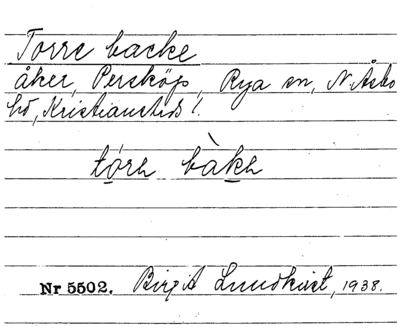 Torre backe
åker, Persköp, Rya sn, N. Åsbo
hd, Kristianstads l.
tóre bàke
Nr 5502. Birgit Lundkvist, 1938.